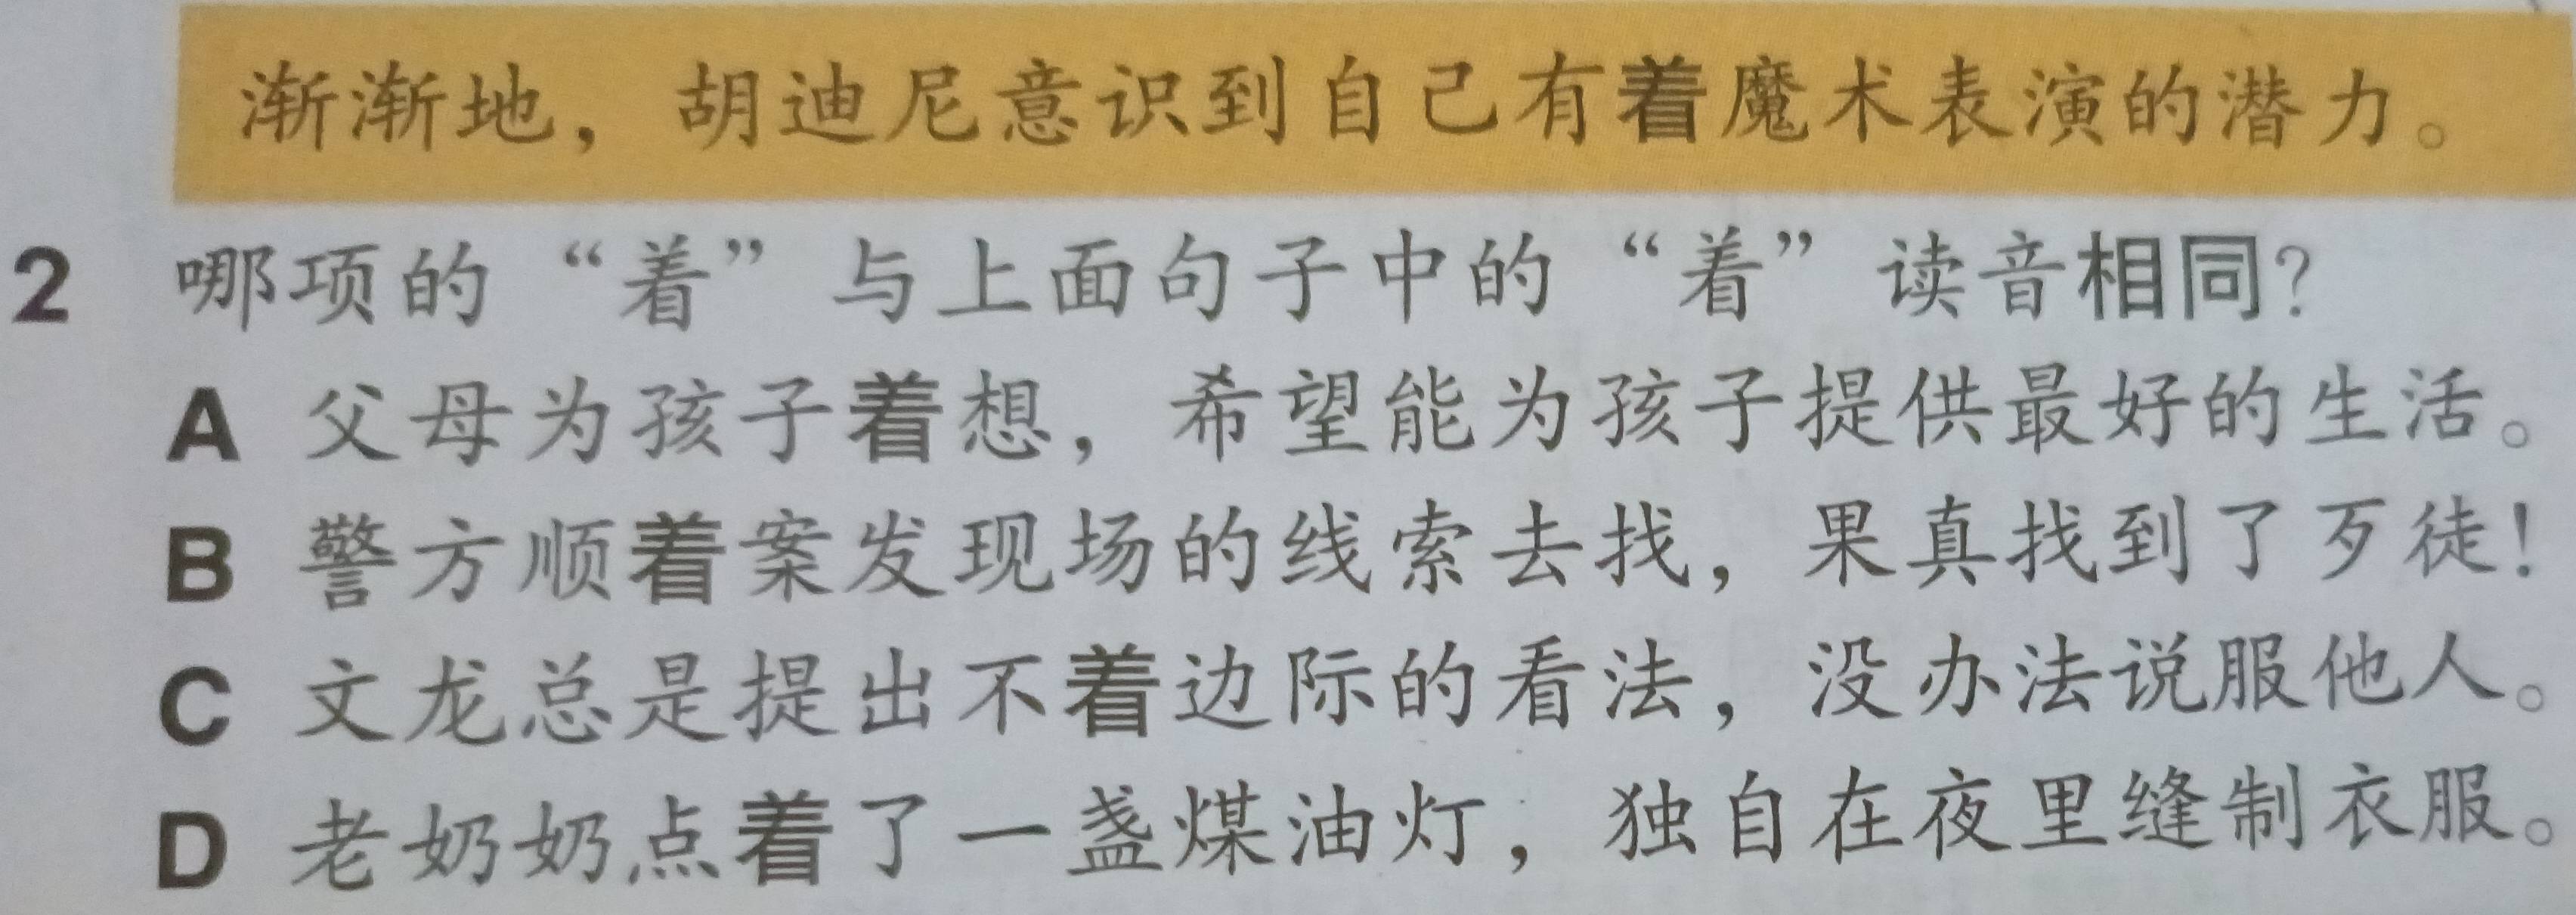 渐渐地，胡迪尼意识到自己有着魔术表演的潜力。
2 哪项的“着”与上面句子中的“着”读音相同?
A 父母为孩子着想，希望能为孩子提供最好的生活。
B 警方顺着案发现场的线索去找，果真找到了歹徒!
C 文龙总是提出不着边际的看法，没办法说服他人。
D 老奶奶点着了一盏煤油灯，独自在夜里缝制衣服。